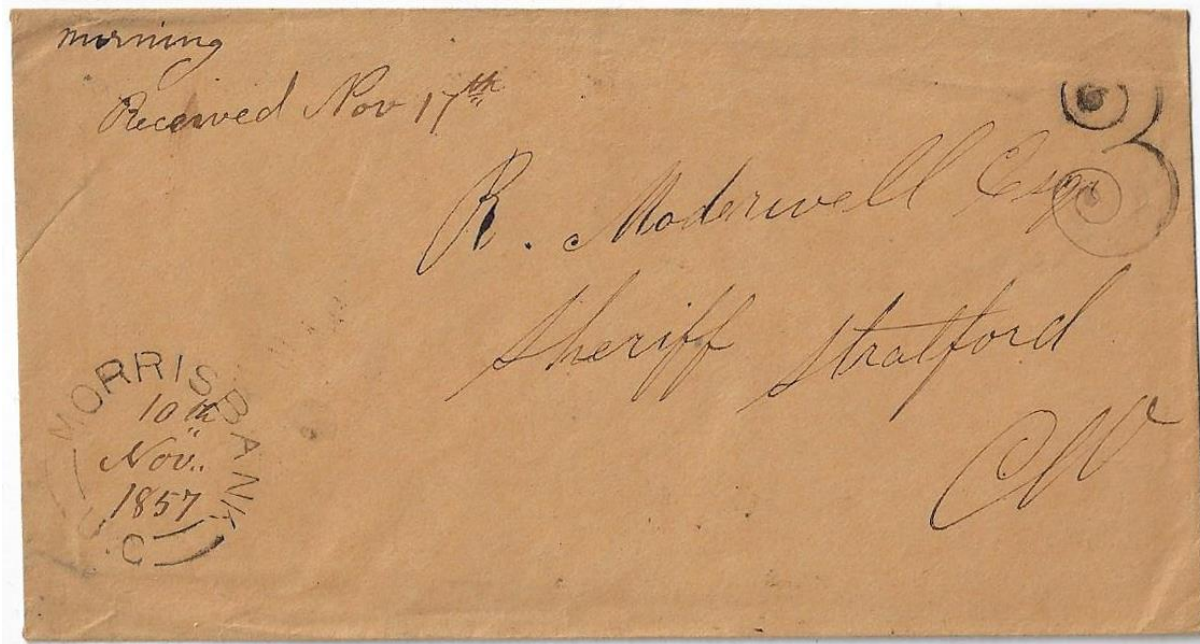 morning
Received Nov 17th
3
R. Moderwell Esqr
Sheriff Stratford
CW
MORRISBANK
10th
Nov.
1857
U.C